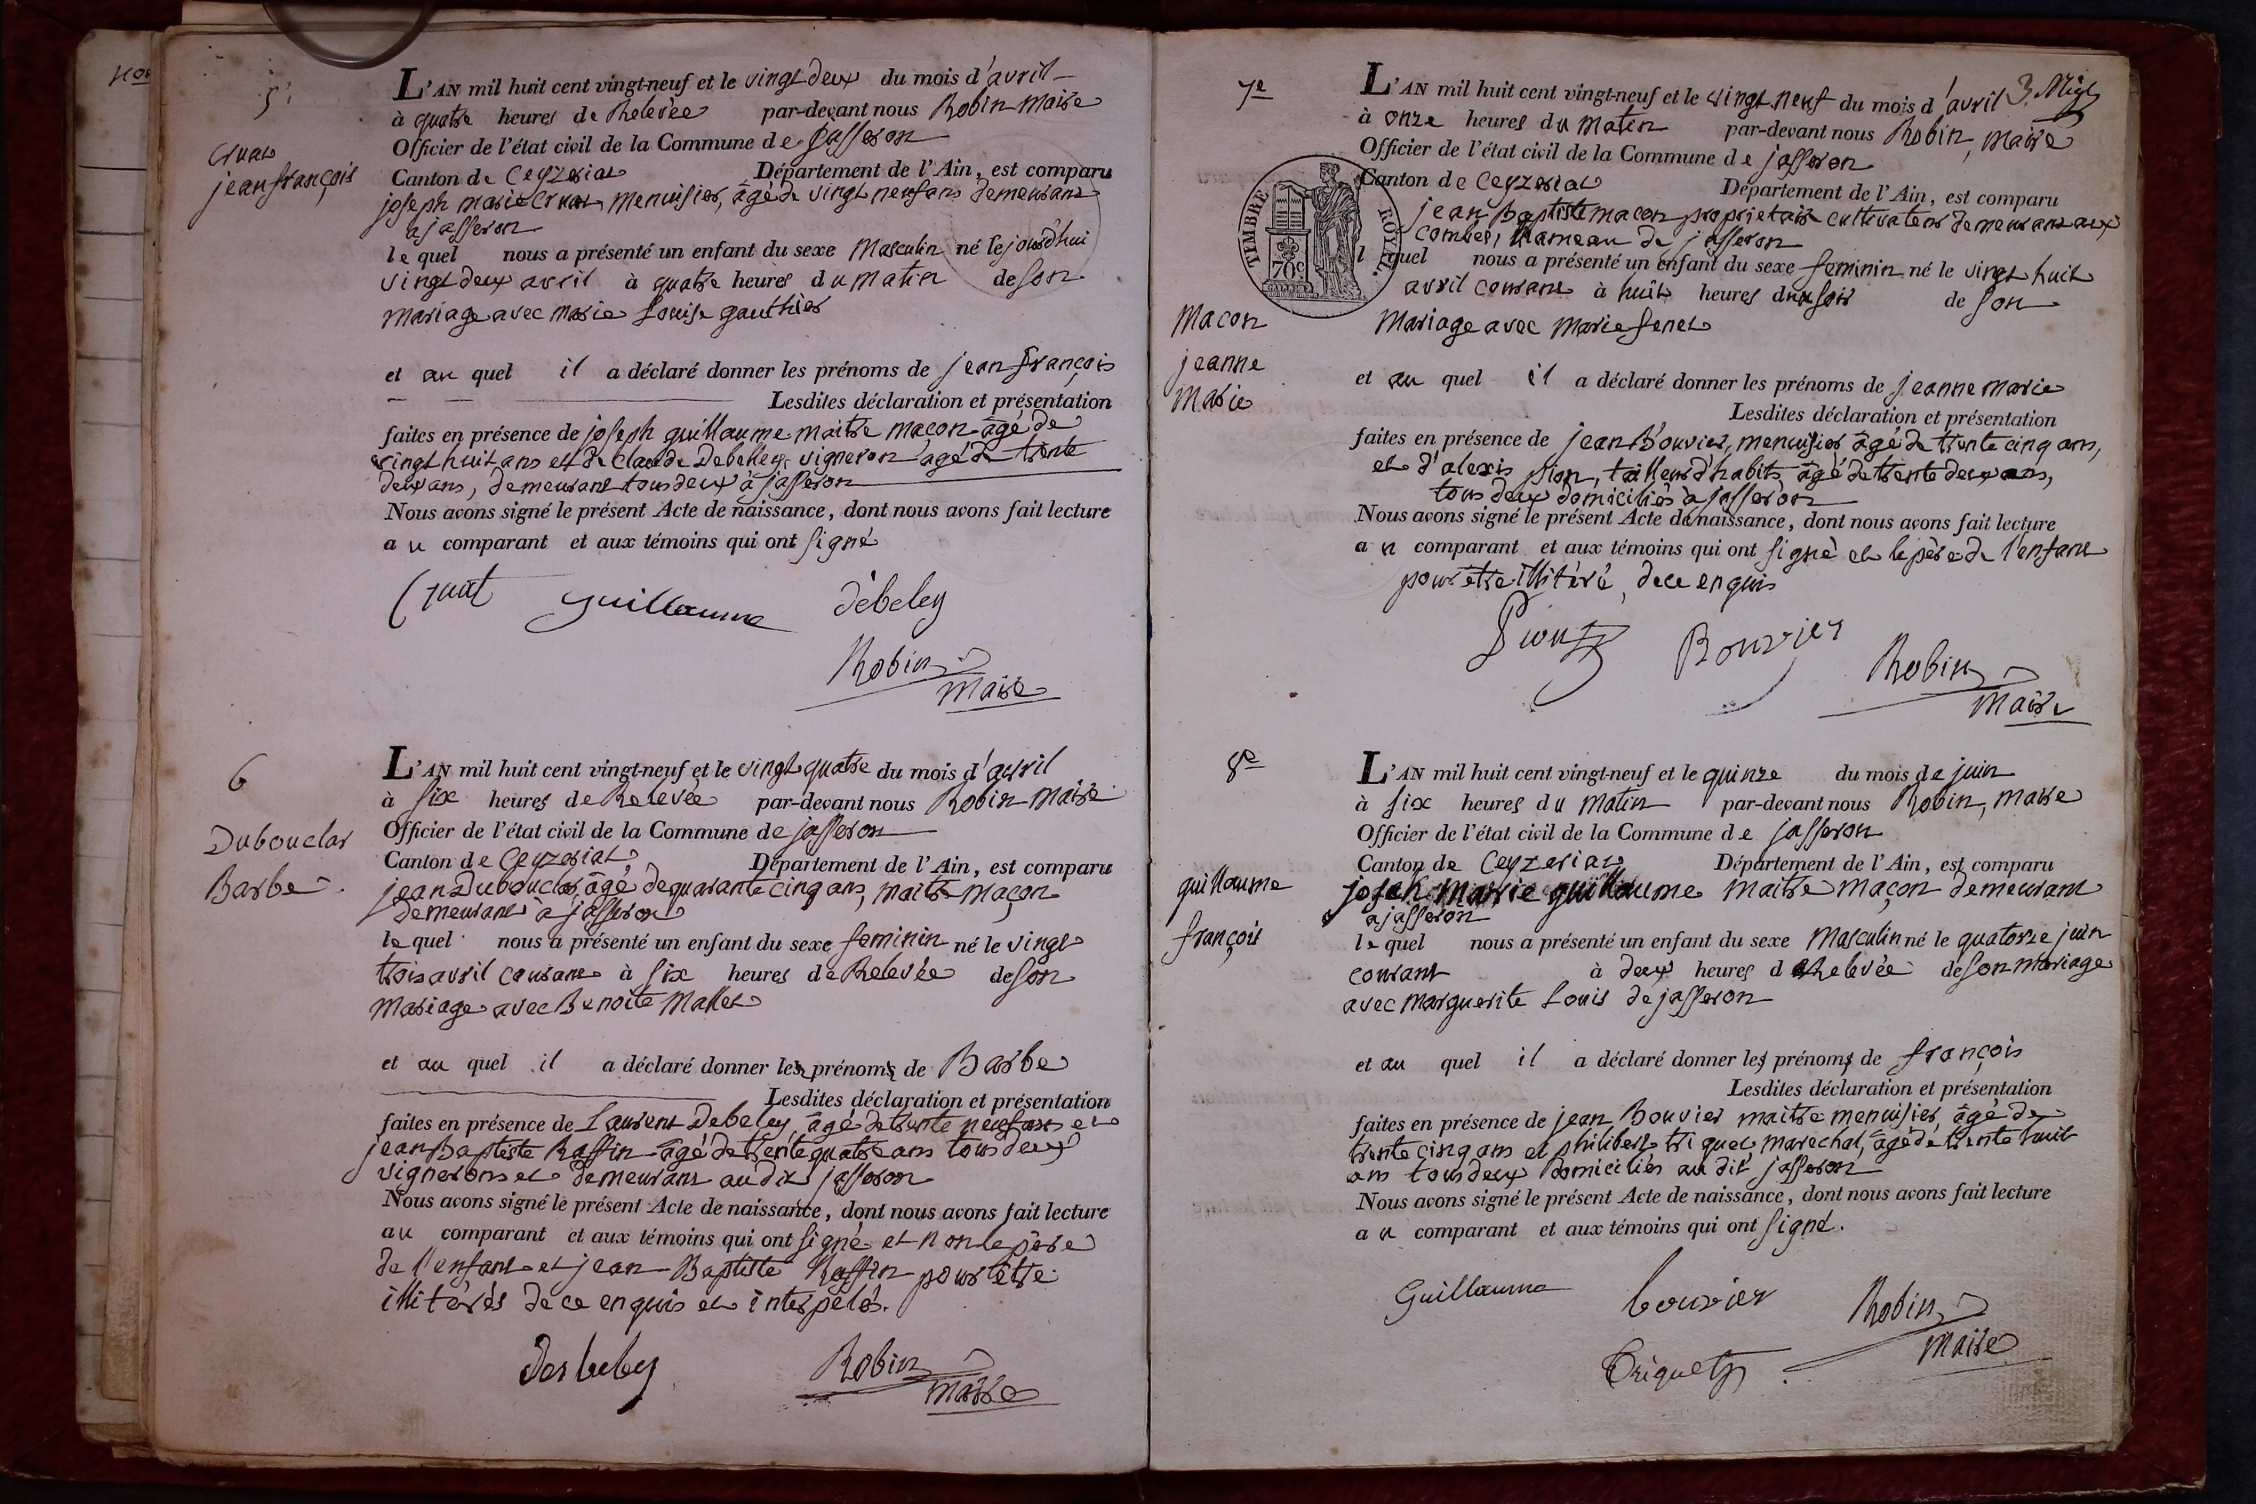 5.
Cruat
jean françois
L'AN mil huit cent vingt-neuf et le vingt deux du mois d'avril
à quatre heures de Relevée par-devant nous Robin Maire
Officier de l'état civil de la Commune de jasseron
Canton de Ceyzeriat Département de l'Ain, est comparu
joseph marie Cruat menuisier, âgé de vingt neuf ans demeurant
a jasseron
le quel nous a présenté un enfant du sexe Masculin né le jourd'hui
vingt deux avril à quatre heures du matin de son
mariage avec marie Louise gauthier
et au quel il a déclaré donner les prénoms de jean françois
Lesdites déclaration et présentation
faites en présence de joseph guillaume maitre maçon âgé de
vingt huit ans et de Claude Debeley, vigneron âgé de trente
deux ans, demeurant tous deux à jasseron
Nous avons signé le présent Acte de naissance, dont nous avons fait lecture
au comparant et aux témoins qui ont signé
Cruat guillaume débeley
Robin
maire
6
Dubouclar
Barbe
L'AN mil huit cent vingt-neuf et le vingt quatre du mois d'avril
à six heures de Relevée par-devant nous Robin Maire
Officier de l'état civil de la Commune de jasseron
Canton de Ceyzeriat Département de l'Ain, est comparu
jean Dubouclar, âgé de quarante cinq ans, maitre maçon
demeurant à jasseron
le quel nous a présenté un enfant du sexe feminin né le vingt
trois avril courant à six heures de Relevée de son
mariage avec Benoite Mallet
et au quel il a déclaré donner les prénoms de Barbe
Lesdites déclaration et présentation
faites en présence de Laurent Debeley, âgé de trente neuf ans et
jean Baptiste Raffin âgé de trente quatre ans tous deux
vignerons et demeurant au dit jasseron
Nous avons signé le présent Acte de naissance, dont nous avons fait lecture
au comparant et aux témoins qui ont signé et non le père
de l'enfant et jean Baptiste Raffin pour être
illitérés de ce enquis et interpelés.
Desbeley Robin
maire
7e
3.
TIMBRE ROYAL
70c
Macon
jeanne
Marie
L'AN mil huit cent vingt-neuf et le vingt neuf du mois d'avril
à onze heures du matin par-devant nous Robin, maire
Officier de l'état civil de la Commune de jasseron
Canton de Ceyzeriat Département de l'Ain, est comparu
jean baptiste macon proprietaire cultivateur demeurant aux
combes, hameau de jasseron
lequel nous a présenté un enfant du sexe feminin né le vingt huit
avril courant à huit heures du soir de son
Mariage avec Marie fenet
et au quel il a déclaré donner les prénoms de jeanne marie
Lesdites déclaration et présentation
faites en présence de jean Bouvier, menuisier âgé de trente cinq ans,
et d'alexis pion, tailleur d'habits, âgé de trente deux ans,
tous deux domiciliés à jasseron
Nous avons signé le présent Acte de naissance, dont nous avons fait lecture
au comparant et aux témoins qui ont signé et le père de l'enfant
pour être illitéré, de ce enquis
Pion Bouvier Robin
maire
8e
guillaume
françois
L'AN mil huit cent vingt-neuf et le quinze du mois de juin
à six heures du matin par-devant nous Robin, maire
Officier de l'état civil de la Commune de jasseron
Canton de Ceyzeriat Département de l'Ain, est comparu
joseh marie guillaume maitre maçon demeurant
a jasseron
le quel nous a présenté un enfant du sexe Masculin né le quatorze juin
courant à deux heures de Relevée de son mariage
avec marguerite Louis de jasseron
et au quel il a déclaré donner les prénoms de françois
Lesdites déclaration et présentation
faites en présence de jean Bouvier maitre menuisier, âgé de
trente cinq ans et philibert triquet, marechal, âgé de trente huit
ans tous deux domiciliés au dit jasseron
Nous avons signé le présent Acte de naissance, dont nous avons fait lecture
au comparant et aux témoins qui ont signé.
Guillaume bouvier Robin
maire
Triquet